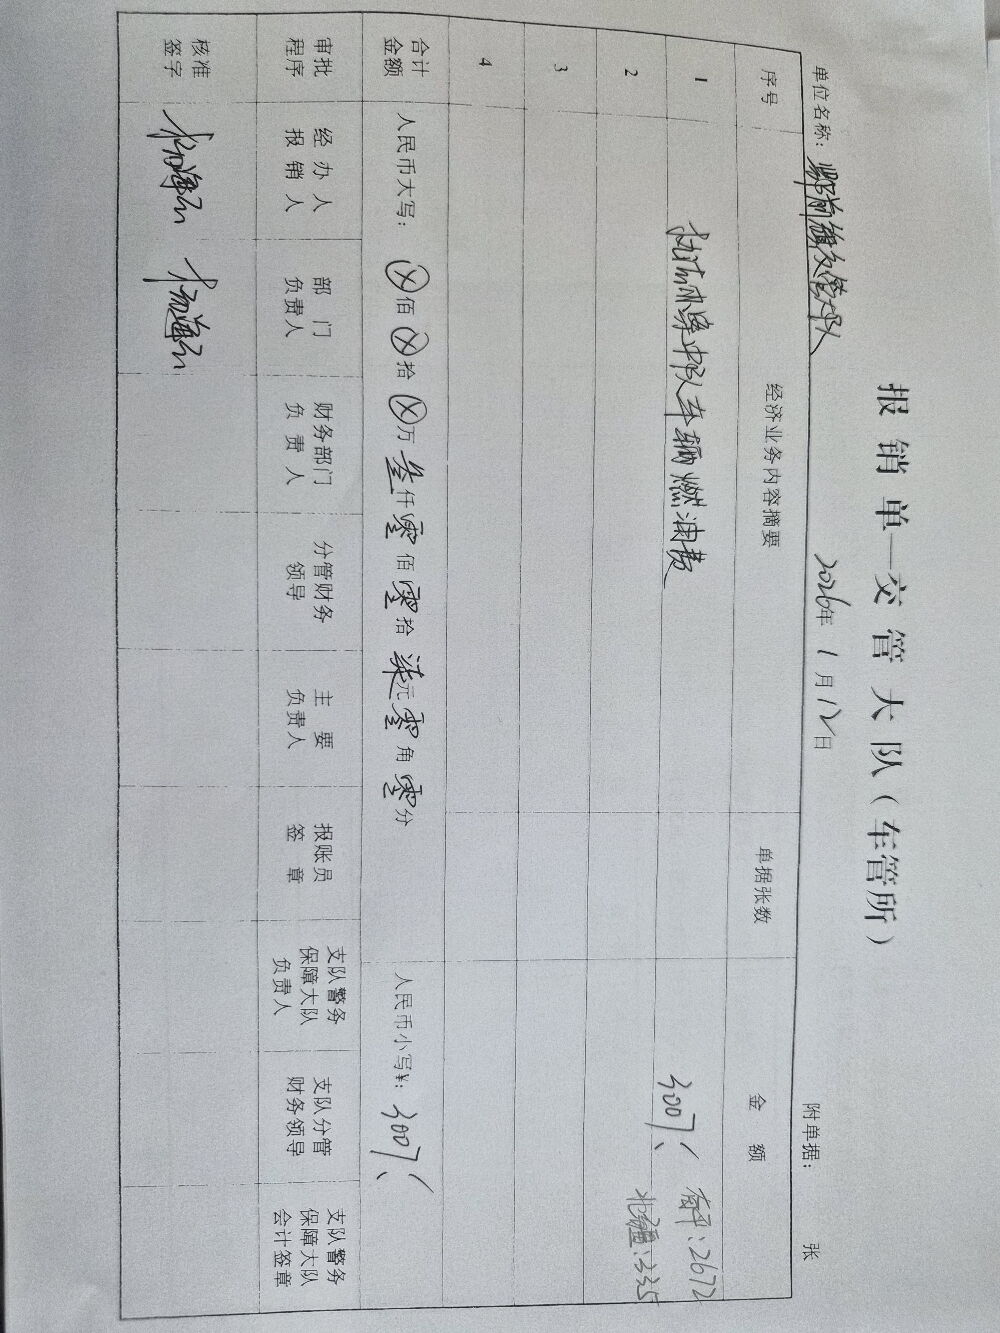 报销单—交管大队（车管所）
单位名称：鄂前旗交管大队 2026年1月12日 附单据： 张
序号 经济业务内容摘要 单据张数 金额
1 中队车辆燃油费 3007 2672
2 北疆：335
3
4
合计金额 人民币大写：ⓧ佰ⓧ拾ⓧ万叁仟零佰零拾柒元零角零分 人民币小写¥：3007
审批程序 经办人报销人 部门负责人 财务部门负责人 分管财务领导 主要负责人 报账员签章 支队警务保障大队负责人 支队分管财务领导 支队警务保障大队会计签章
核准签字